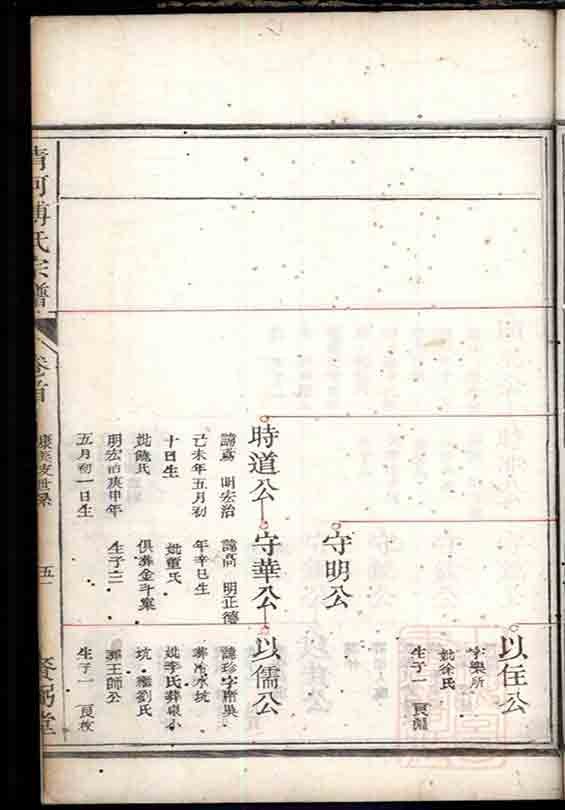 以任公
字樂所
妣徐氏
生子一
守明公
時道公
諱鳶 明宏治
己未年五月初
十日生
妣饒氏
明宏治庚申年
五月初一日生
守華公
諱高 明正德
年辛巳生
妣董氏
俱葬金斗窠
生子二
以儒公
諱珍字南吳
葬冷水坑
妣李氏葬泉小
坑 繼劉氏
葬王師公
生子一 良枚
清河傅氏宗譜
卷首
五一
賚弼堂